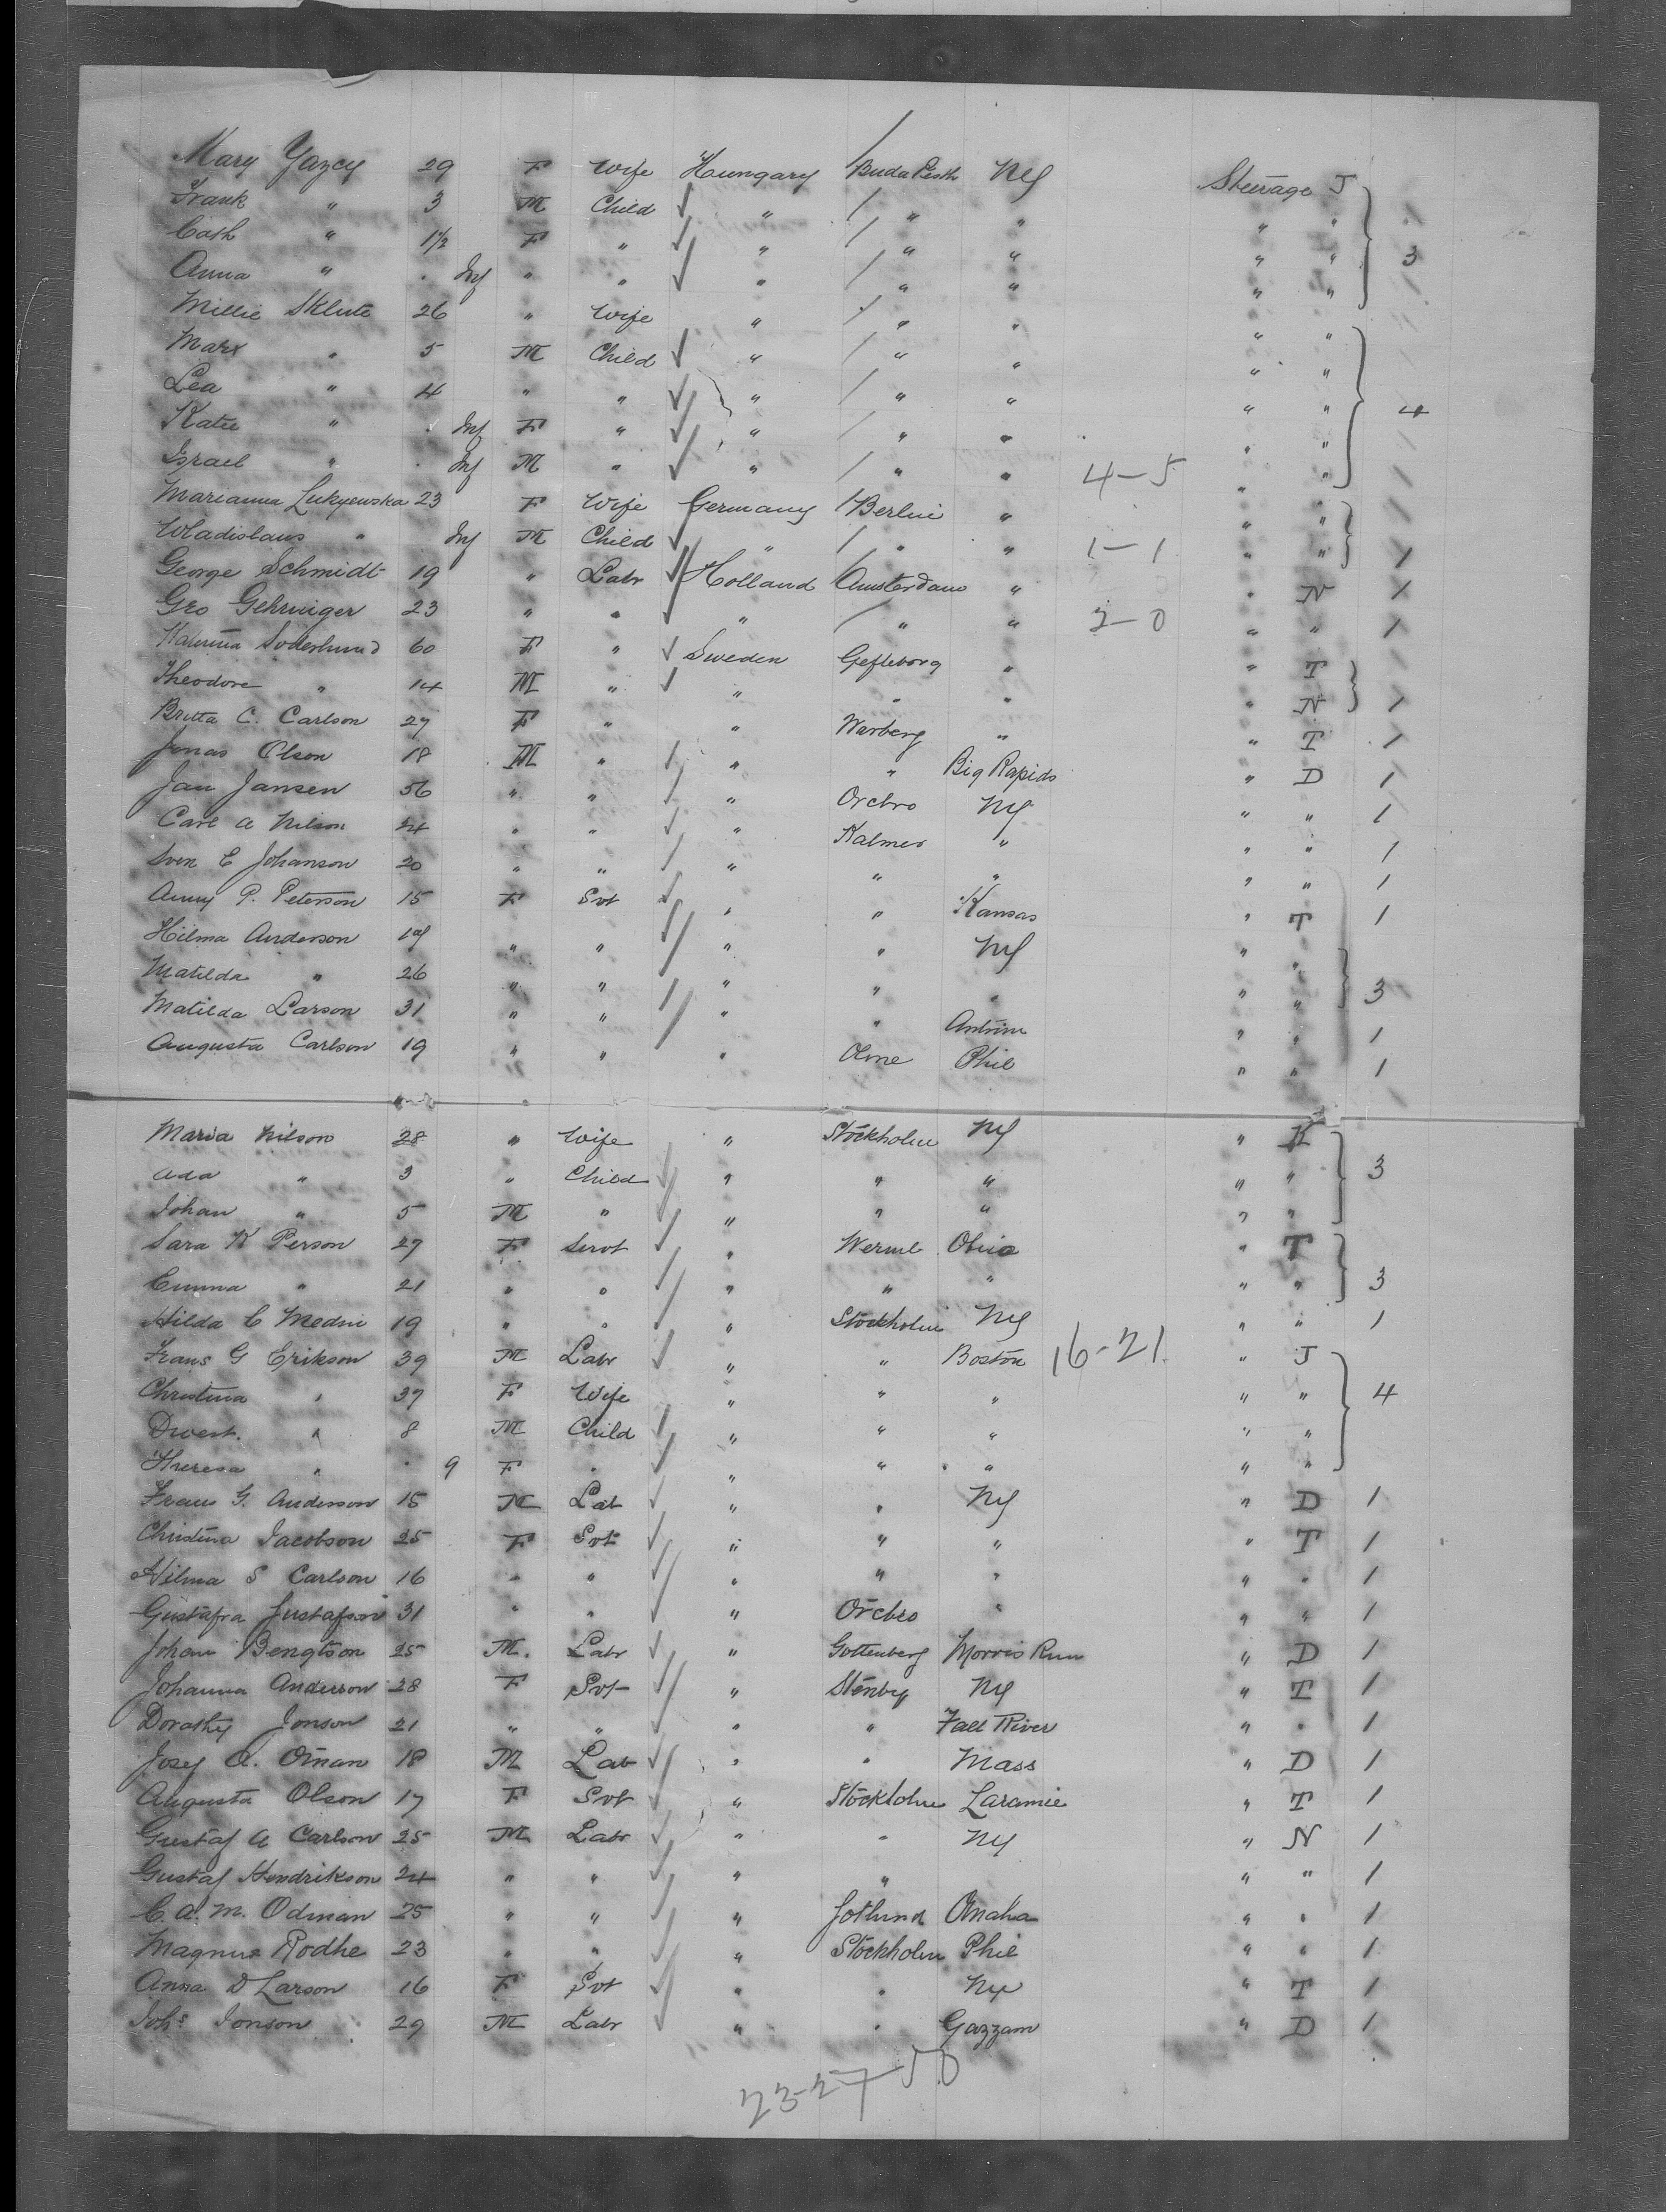 Mary Yazcy 29 F Wife Hungary Buda Pesth NY Steerage J
Frank " 3 M Child " " " " "
Cath " 1½ F " " " " " " 3
Anna " Inf " " " " " " "
Millie Sklute 26 " Wife " " " " "
Marx " 5 M Child " " " " "
Lea " 4 " " " " " " " 4
Katie " Inf F " " " " " "
Israel " Inf M " " " " 4-5 " "
Marianna 23 F Wife Germany Berlin " " "
Wladislaus " Inf M Child " " " 1-1 " " 1
George Schmidt 19 " Labr Holland Amsterdam " " N 1
Geo Gehringer 23 " " " " " 2-0 " " 1
Soderlund 60 F " Sweden Gefleborg " " T
Theodore " 14 M " " " " " N 1
Britta C. Carlson 27 F " " Warberg " " T 1
Jonas Olson 18 M " " " Big Rapids " D 1
Jan Jansen 56 " " " Orebro NY " " 1
Carl A Nilson 24 " " " Kalmer " " " 1
Sven E Johanson 20 " " " " " " " 1
Anny P. Peterson 15 F Svt " " Kansas " T 1
Hilma Anderson 19 " " " " NY " "
Matilda " 26 " " " " " " " 3
Matilda Larson 31 " " " " Antrim " " 1
Augusta Carlson 19 " " " Phil " " 1
Maria Nilson 28 " Wife " Stockholm NY " K
Ada " 3 " Child " " " " " 3
Johan " 5 M " " " " " "
Sara K Person 27 F Servt " Werml Ohio " T
Emma " 21 " " " " " " " 3
Hilda C Medin 19 " " " Stockholm NY " " 1
Frans G Erikson 39 M Labr " " Boston 16-21 " J
Christina " 37 F Wife " " " " " 4
" 8 M Child " " " " "
Theresa " 9 F " " " " " "
Frans G. Anderson 15 M Lab " " NY " D 1
Christina Jacobson 25 F Svt " " " " T 1
Hilma S Carlson 16 " " " " " " " 1
Gustafva Gustafson 31 " " " Orebro " " " 1
Johan Bengtson 25 M. Labr " Gottenberg Morris Run " D 1
Johanna Anderson 28 F Svt " Stenby NY " T 1
Dorathy Jonson 21 " " " " Fall River " " 1
Josef A. Oman 18 M Lab " " Mass " D 1
Augusta Olson 17 F Svt " Stockholm Laramie " T 1
Gustaf A Carlson 25 M Labr " " NY " N 1
Gustaf Hendrikson 24 " " " " " " 1
C. A. M. Odman 25 " " " Gotlund Omaha " " 1
Magnus Rodhe 23 " " " Stockholm Phil " " 1
Anna D Larson 16 F Svt " " NY " T 1
Johs Jonson 29 M Labr " " Gazzam " D 1
23-27-50